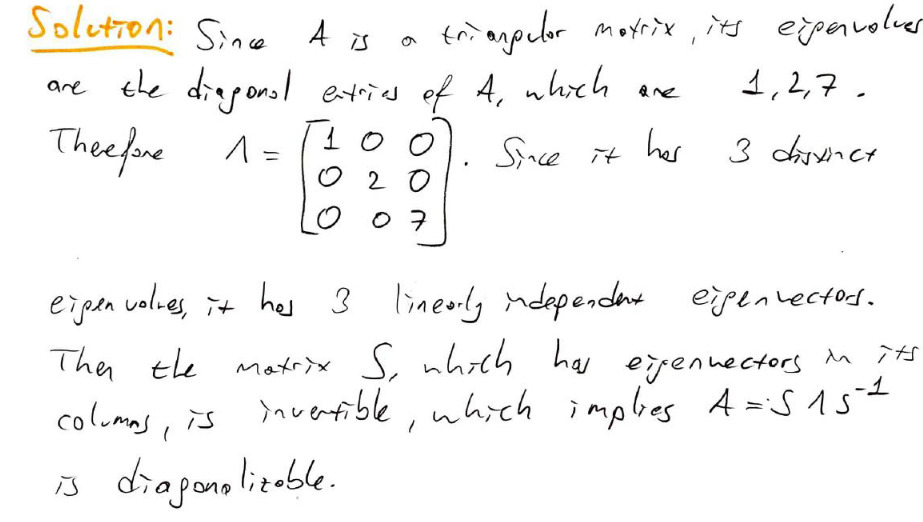 Solution: Since A is a triangular matrix, its eigenvalues
are the diagonal entries of A, which are 1, 2, 7.
Therefore Λ = [1 0 0
0 2 0
0 0 7]. Since it has 3 distinct
eigenvalues, it has 3 linearly independent eigenvectors.
Then the matrix S, which has eigenvectors in its
columns, is invertible, which implies A = S Λ S⁻¹
is diagonalizable.